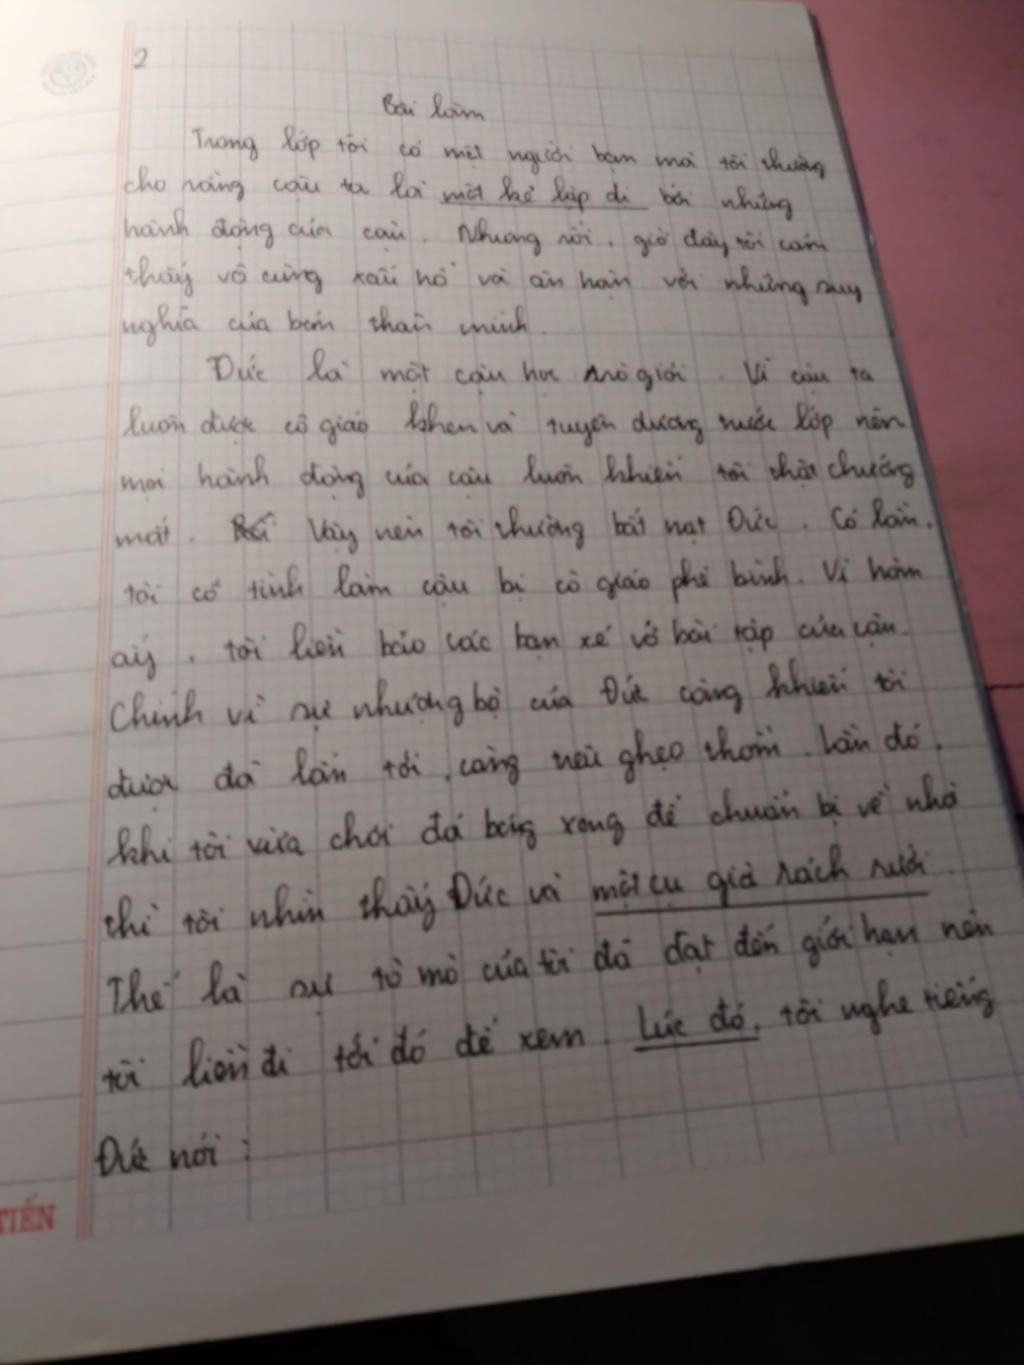 2
Bài làm
Trong lớp tôi có một người bạn mà tôi thường
cho rằng cậu ta là một kẻ lập dị bởi những
hành động của cậu. Nhưng rồi, giờ đây tôi cảm
thấy vô cùng xấu hổ và ân hận với những suy
nghĩa của bản thân mình.
Đức là một cậu học trò giỏi. Vì cậu ta
luôn được cô giáo khen và tuyên dương trước lớp nên
mọi hành động của cậu luôn khiến tôi thật chướng
mắt. Vậy nên tôi thường bắt nạt Đức. Có lần,
tôi cố tình làm cậu bị cô giáo phê bình. Vì hôm
ấy, tôi liền bảo các bạn xé vở bài tập của cậu.
Chính vì sự nhượng bộ của Đức càng khiến tôi
được đà lấn tới, càng trêu ghẹo thêm. Lần đó,
khi tôi vừa chơi đá bóng xong để chuẩn bị về nhà
thì tôi nhìn thấy Đức và một cụ già rách rưới.
Thế là sự tò mò của tôi đã đạt đến giới hạn nên
tôi liền đi tới đó để xem. Lúc đó, tôi nghe tiếng
Đức nói:
TIẾN